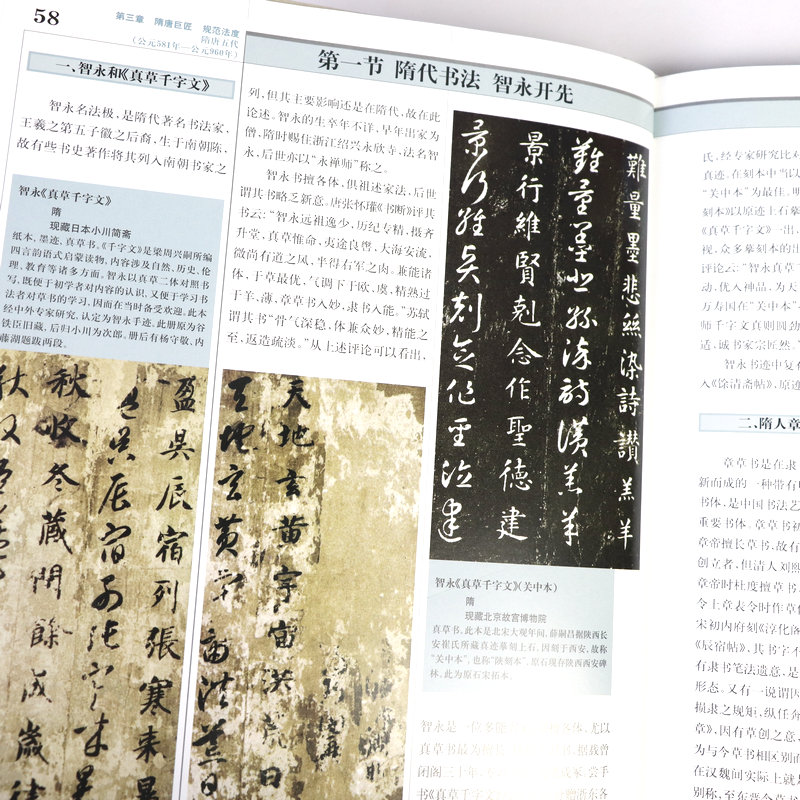 58
第三章 隋唐巨匠 规范法度
隋唐五代
(公元581年—公元960年)
第一节 隋代书法 智永开先
一、智永和《真草千字文》
智永名法极，是隋代著名书法家，
王羲之第五子徽之后裔，生于南朝陈，
故有些书史著作将其列入南朝书家之
智永《真草千字文》
隋
现藏日本小川简斋
纸本，墨迹，真草书。《千字文》是梁周兴嗣所编
四言韵语式启蒙读物，内容涉及自然、历史、伦
理、教育等诸多方面。智永以真草二体对照书
写，既便于初学者对内容的认识，又便于学习书
法者对草书的学习，因而在当时备受欢迎。此本
经中外专家研究，认定为智永手迹。此册原为谷
铁臣旧藏，后归小川为次郎。册后有杨守敬、内
藤湖题跋两段。
列，但其主要影响还是在隋代，故在此
论述。智永的生卒年不详，早年出家为
僧，隋时赐住浙江绍兴永欣寺，法名智
永，后世亦以“永禅师”称之。
智永书擅各体，但祖述家法，后世
谓其书略乏新意。唐张怀瓘《书断》评其
书云：“智永远祖逸少，历纪专精，摄齐
升堂，真草惟命，夷途良辔，大海安流，
微尚有道之风，半得右军之肉。兼能诸
体，于草最优，气调下于欧、虞，精熟过
于羊、薄，章草书入妙，隶书入能。”苏轼
谓其书“骨气深稳，体兼众妙，精能之
至，返造疏淡。”从上述评论可以看出，
難量墨悲絲染詩讚羔羊
難量墨悲絲染詩讚羔羊
景行維賢剋念作聖德建
景行維賢剋念作聖德建
智永《真草千字文》(关中本)
隋
现藏北京故宫博物院
真草书。此本是北宋大观年间，薛嗣昌据陕西长
安崔氏所藏真迹摹刻上石。因刻于西安，故称
“关中本”，也称“陕刻本”。原石现存陕西西安碑
林，此为原石宋拓本。
智永是一位多
各体，尤以
真草书最为
闭阁三十年
书《真草千字文》
天地玄黄宇宙洪荒
天地玄黄
洪荒日
盈昃辰宿列張寒来暑
昃辰宿列張寒来暑
秋收冬藏閏餘成歲律
氏，经专家研究比对
真迹。在刻本中当以
“关中本”为最佳。明
刻本》以原迹上石摹
《真草千字文》一出，
视，众多摹刻本的出
评论云：“智永真草
动，优入神品，为天
万寿国在“关中本”
师千字文真则圆劲
适，诚书家宗匠然。”
智永书迹中复有
入《馀清斋帖》，原迹
二、隋人章
章草书是在隶
新而成的一种带有
书体，是中国书法艺
重要书体。章草书初
章帝擅长草书，故有
创立者，但清人刘熙
章帝时杜度擅草书，
令上章表令时作草
宋初内府刻《淳化阁
《辰宿帖》，其书字不
有隶书笔法遗意，是
形态。又有一说谓因
损隶之规矩，纵任奔
章》，因有草创之意，
为与今草书相区别而
在汉魏间实际上就是
别称，至东晋今草书